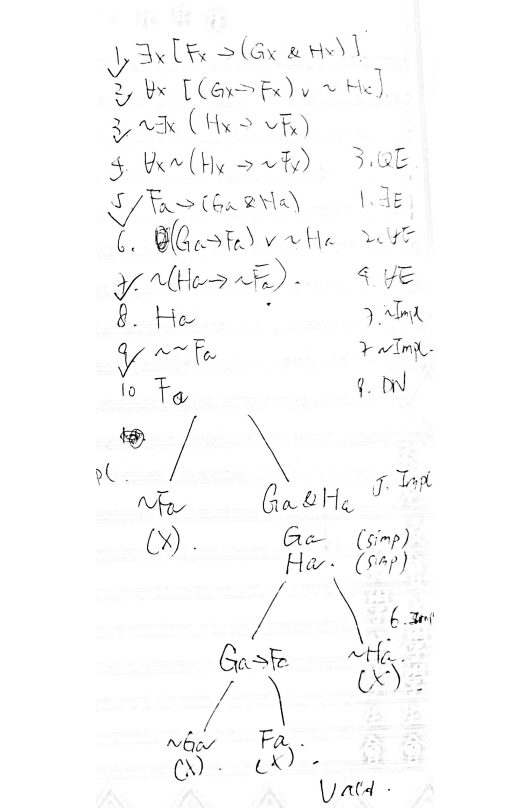 1. ∃x [Fx → (Gx & Hx)]
2. ∀x [(Gx → Fx) ∨ ~Hx]
3. ~∃x (Hx → ~Fx)
4. ∀x ~(Hx → ~Fx) 3. QE
5. Fa → (Ga & Ha) 1. ∃E
6. (Ga → Fa) ∨ ~Ha 2. ∀E
7. ~(Ha → ~Fa). 4. ∀E
8. Ha 7. ~Impl
9. ~~Fa 7 ~Impl.
10 Fa 9. DN
pl.
~Fa Ga & Ha 5. Impl
(X). Ga (simp)
Ha. (simp)
6. Im
Ga → Fa ~Ha.
(X)
~Ga Fa.
(X) (X)
Valid.